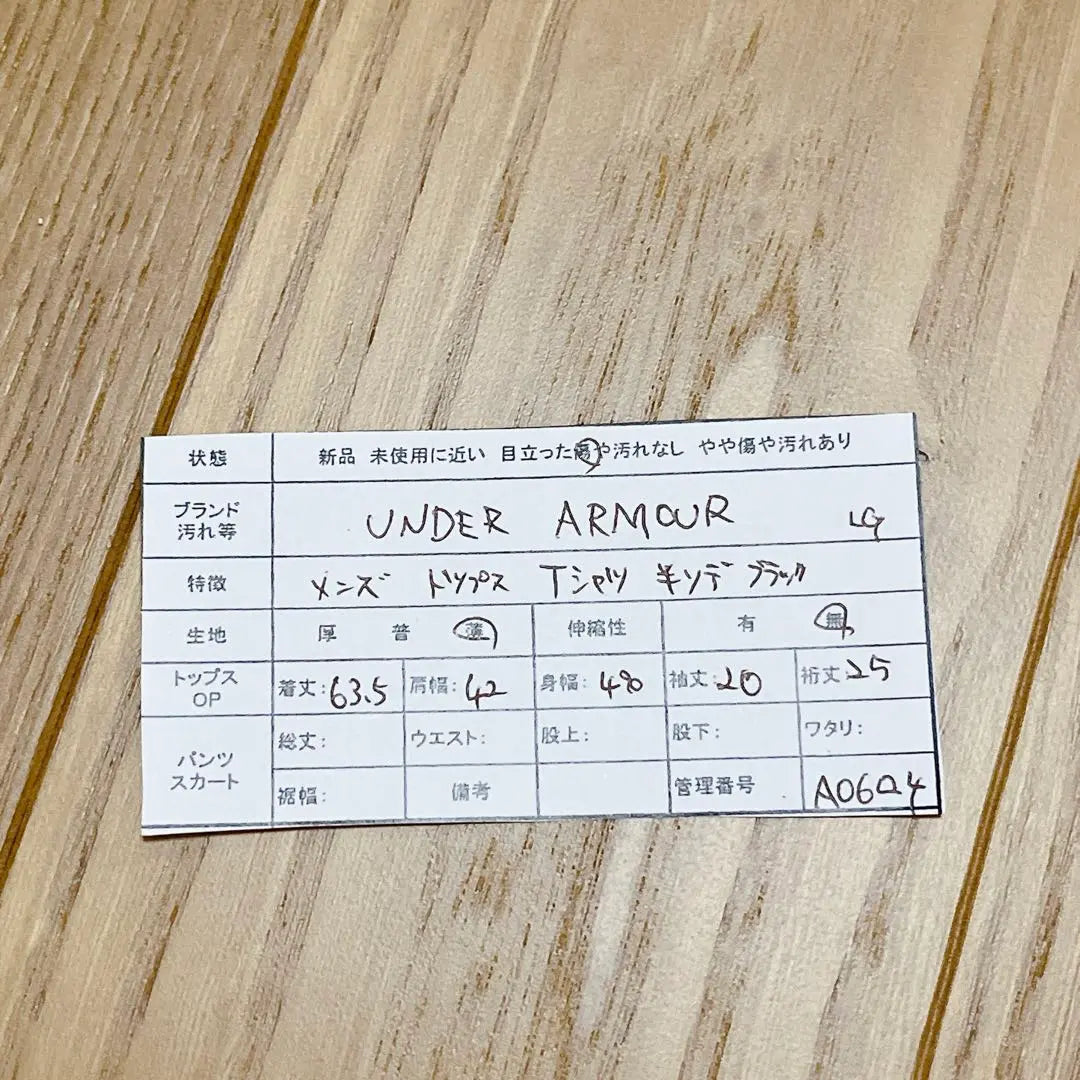 状態 新品 未使用に近い 目立った傷や汚れなし やや傷や汚れあり
ブランド 汚れ等 UNDER ARMOUR LG
特徴 メンズ トップス Tシャツ 半ソデ ブラック
生地 厚 普 薄 伸縮性 有 無
トップス OP 着丈:63.5 肩幅:42 身幅: 袖丈:20 裄丈:25
パンツ スカート 総丈: ウエスト: 股上: 股下: ワタリ:
裾幅: 備考 管理番号